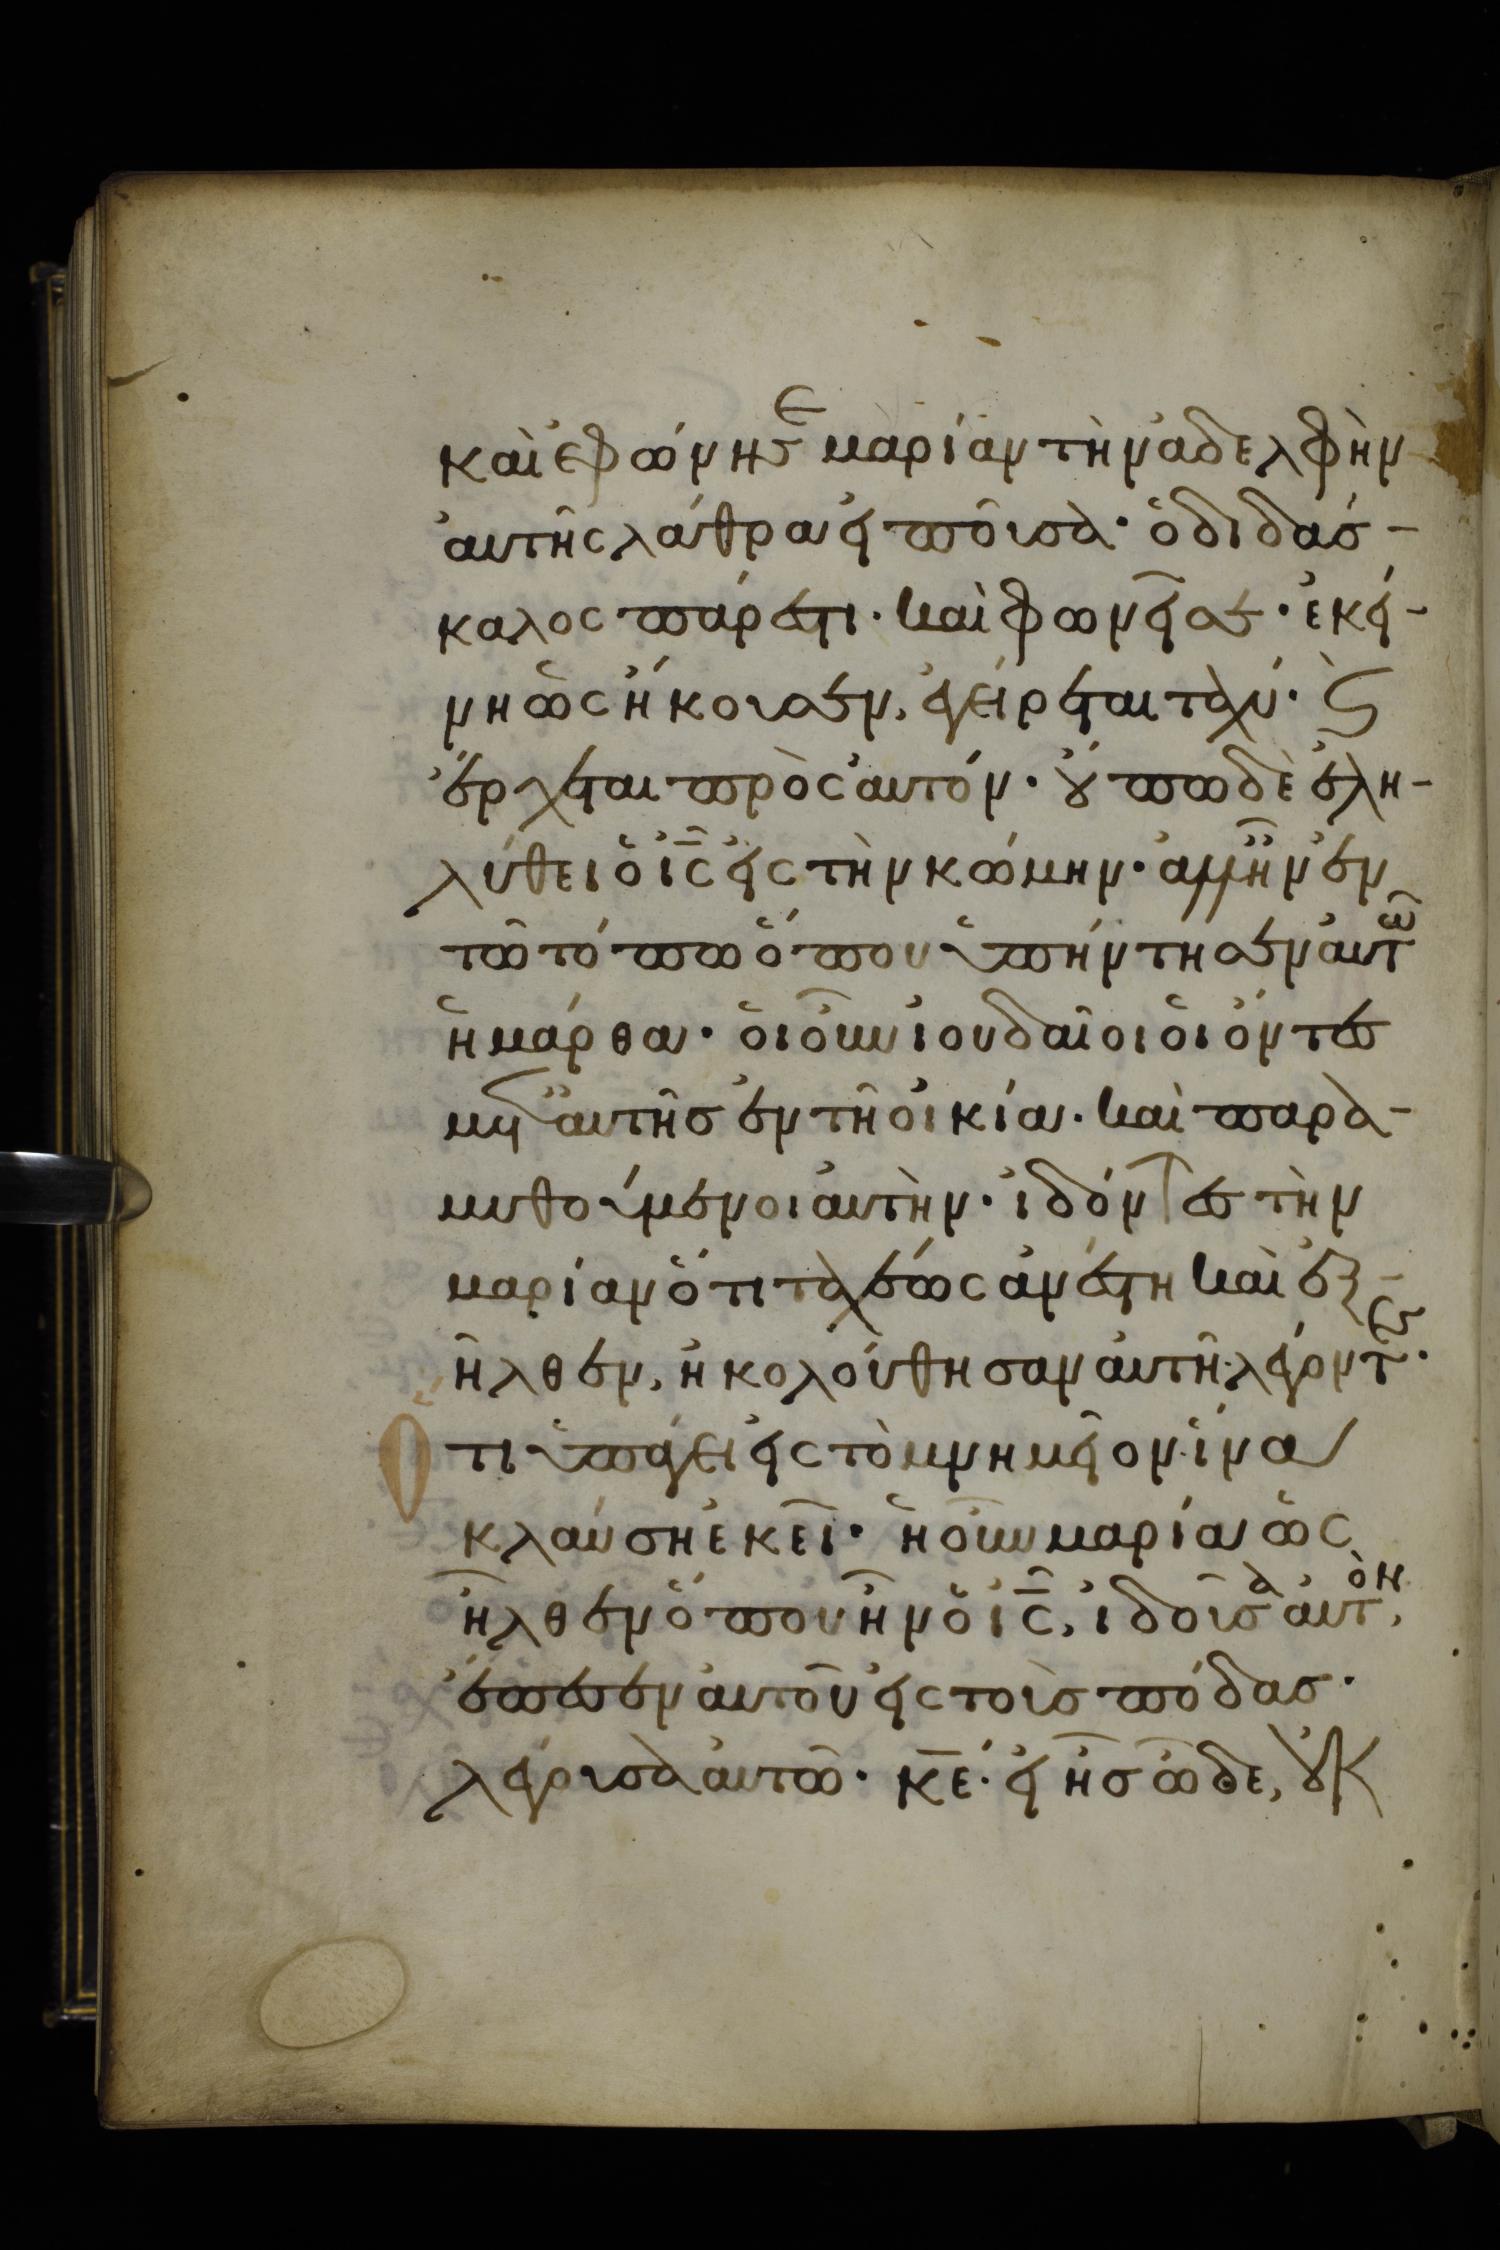 καὶ ἐφώνησε μαρίαν τὴν ἀδελφὴν
αὐτῆς λάθρα εἰποῦσα· ὁ διδάσ-
καλος πάρεστι· καὶ φωνεῖ σε· ἐκεί-
νη ὡς ἤκουσεν, ἐγείρεται ταχύ· ϗ
ἔρχεται πρὸς αὐτόν· οὔπω δὲ ἐλη-
λύθει ὁ ις̅ εἰς τὴν κώμην· ἀλλ ἦν ἐν
τῶ τόπω ὅπου ὑπήντησεν αὐτῶ
ἡ μάρθα· ὁι οὖν ἰουδαῖοι ὁι ὄντες
μετ αὐτῆς ἐν τῆ οἰκία· καὶ παρα-
μυθούμενοι αὐτὴν· ἰδόντες τὴν
μαρίαν ὅτι ταχέως ἀνέστη καὶ ἐξ-
ῆλθεν, ἠκολούθησαν αὐτῆ· λέγοντες·
Ὅτι ὑπάγει εἰς τὸ μνημεῖον· ἵνα
κλαύση ἐκεῖ· ἡ οὖν μαρία ὡς
ἦλθεν ὅπου ἦν ὁ ις̅, ἰδοῦσα αὐτὸν,
ἔπεσεν αὐτοῦ εἰς τοὺς πόδας·
λέγουσα αὐτῶ· κε̅· εἰ ἦς ὧδε, οὐκ